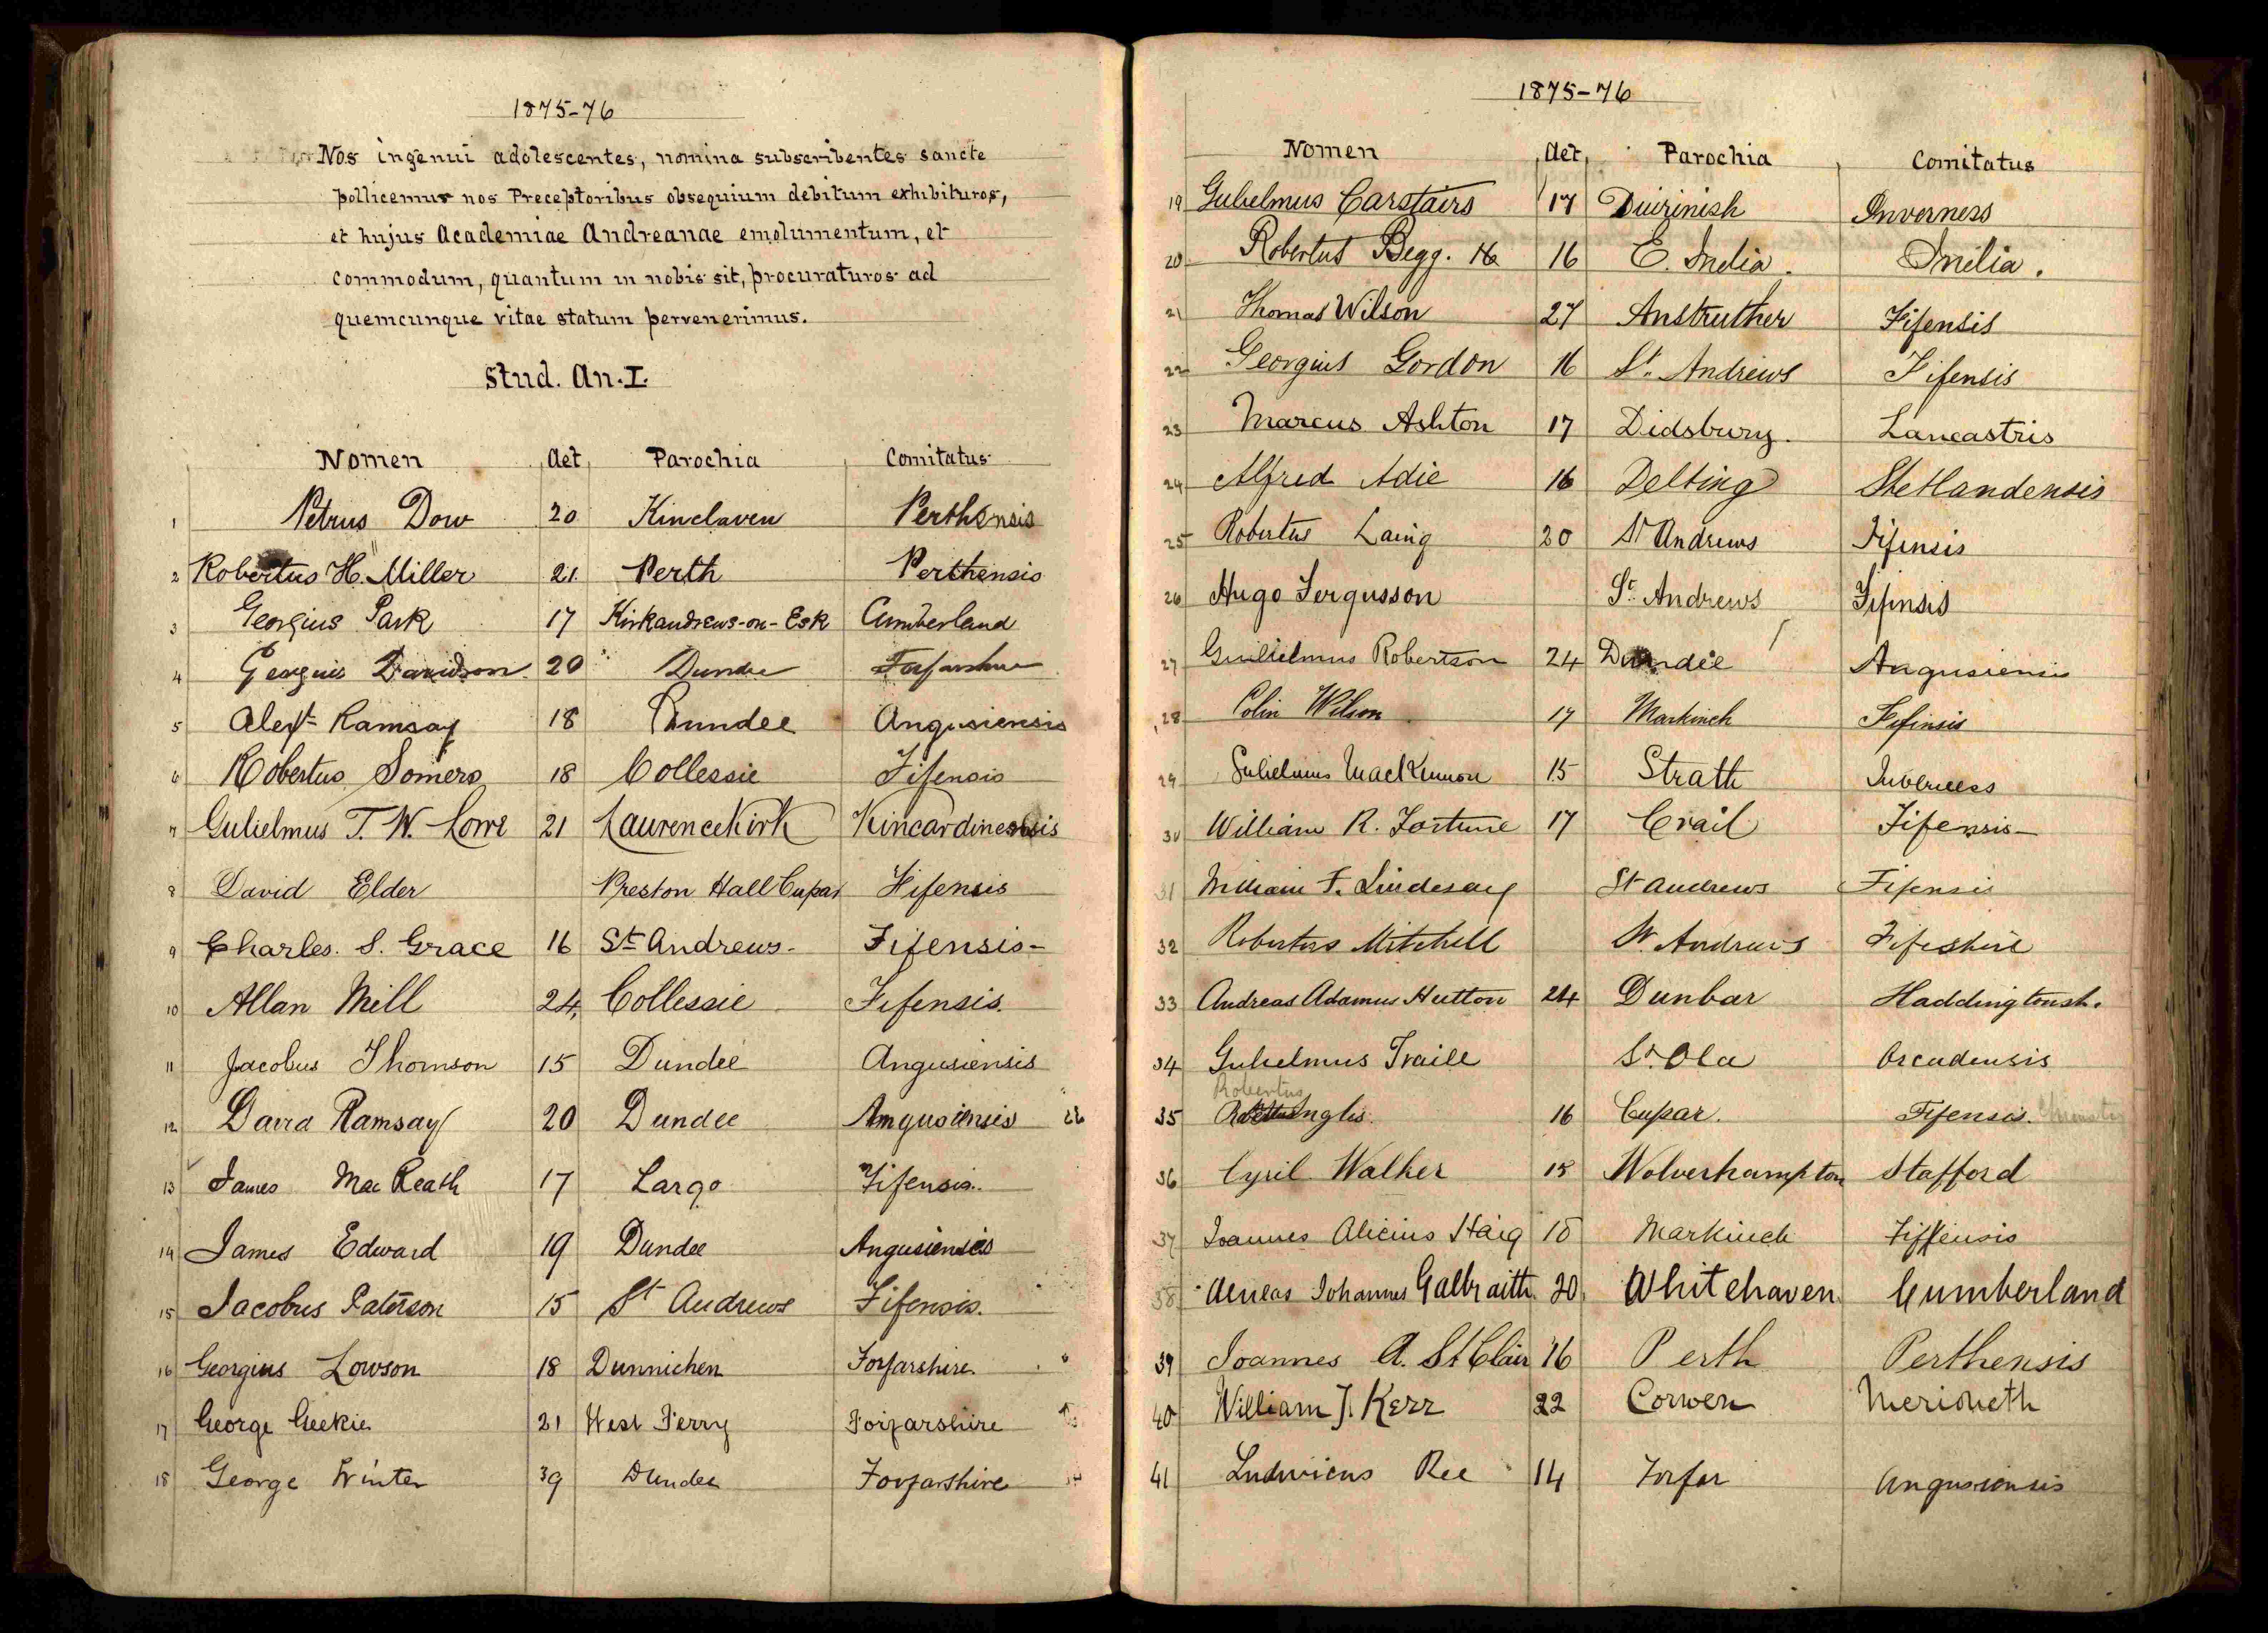 1875-76
Nos ingenui adolescentes, nomina subscribentes sancte
pollicemur nos Preceptoribus obsequium debitum exhibituros,
et hujus Academiae Andreanae emolumentum, et
commodum, quantum in nobis sit, procuraturos ad
quemcunque vitae statum pervenerimus.
Stud. An. I.
Nomen Aet Parochia Comitatus
1 Petrus Dow 20 Kinclaven Perthensis
2 Robertus H. Miller 21. Perth Perthensis
3 Georgius Park 17 Kirkandrews-on-Esk Cumberland
4 Georgius Davidson 20 Dundee Forfarshire
5 Alexr Ramsay 18 Dundee Angusiensis
6 Robertus Somers 18 Collessie Fifensis
7 Gulielmus T. W. Lowe 21 Laurencekirk Kincardinensis
8 David Elder Preston Hall Cupar Fifensis
9 Charles. S. Grace 16 St Andrews- Fifensis-
10 Allan Mill 24, Collessie Fifensis.
11 Jacobus Thomson 15 Dundee Angusiensis
12 David Ramsay 20 Dundee Angusiensis
13 James Mac Reath 17 Largo Fifensis.
14 James Edward 19 Dundee Angusiensis
15 Jacobus Paterson 15 St Andrews Fifensis.
16 Georgius Lowson 18 Dunnichen Forfarshire.
17 George Geekie 21 West Ferry Forfarshire
18 George Winter 39 Dundee Forfarshire
1875-76
Nomen Aet, Parochia Comitatus
19 Gulielmus Carstairs 17 Duirinish Inverness
20 Robertus Begg. 16 E. India. India.
21 Thomas Wilson 27 Anstruther Fifensis
22 Georgius Gordon 16 St. Andrews Fifensis
23 Marcus Ashton 17 Didsbury. Lancastris
24 Alfred Adie 16 Delting Shetlandensis
25 Robertus Laing 20 St Andrews Fifensis
26 Hugo Fergusson St. Andrews Fifensis
27 Guilielmus Robertson 24 Dundee Angusiensis
28 Colin Wilson 17 Markinch Fifensis
29 Gulielmus MacKinnon 15 Strath Inverness
30 William R. Fortune 17 Crail Fifensis-
31 William F. Lindesay St Andrews Fifensis
32 Robertus Mitchell St. Andrews Fifeshire
33 Andreas Adamus Hutton 24 Dunbar Haddingtonsh.
34 Gulielmus Traill St. Ola Orcadensis
Robertus
35 Inglis. 16 Cupar. Fifensis.
36 Cyril Walker 18 Wolverhampton Stafford
37 Joannes Alicius Haig 18 Markinch Fifensis
38 Aeneas Johannes Galbraith. 20 Whitehaven. Cumberland
39 Joannes A. St Clair 16 Perth Perthensis
40 William J. Kerr 22 Corwen Merioneth
41 Ludovicus Ree 14 Forfar Angusiensis